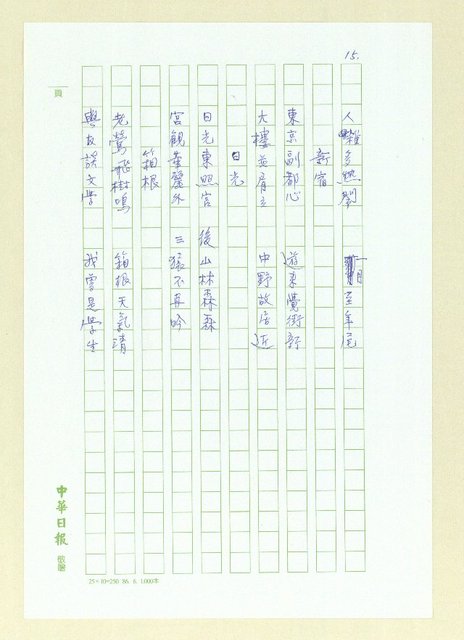 15.
人雜多熱鬧 月至年尾
新宿
東京副都心 遊来覺街新
大樓並肩立 中野故居近
日光
日光東照宮 後山林森森
宮觀華麗外 三猿不再吟
箱根
老鶯飛樹鳴 箱根天氣清
與友談文学 我曾是學生
頁
中華日報 敬贈
25×10=250 '86. 6. 1.000本